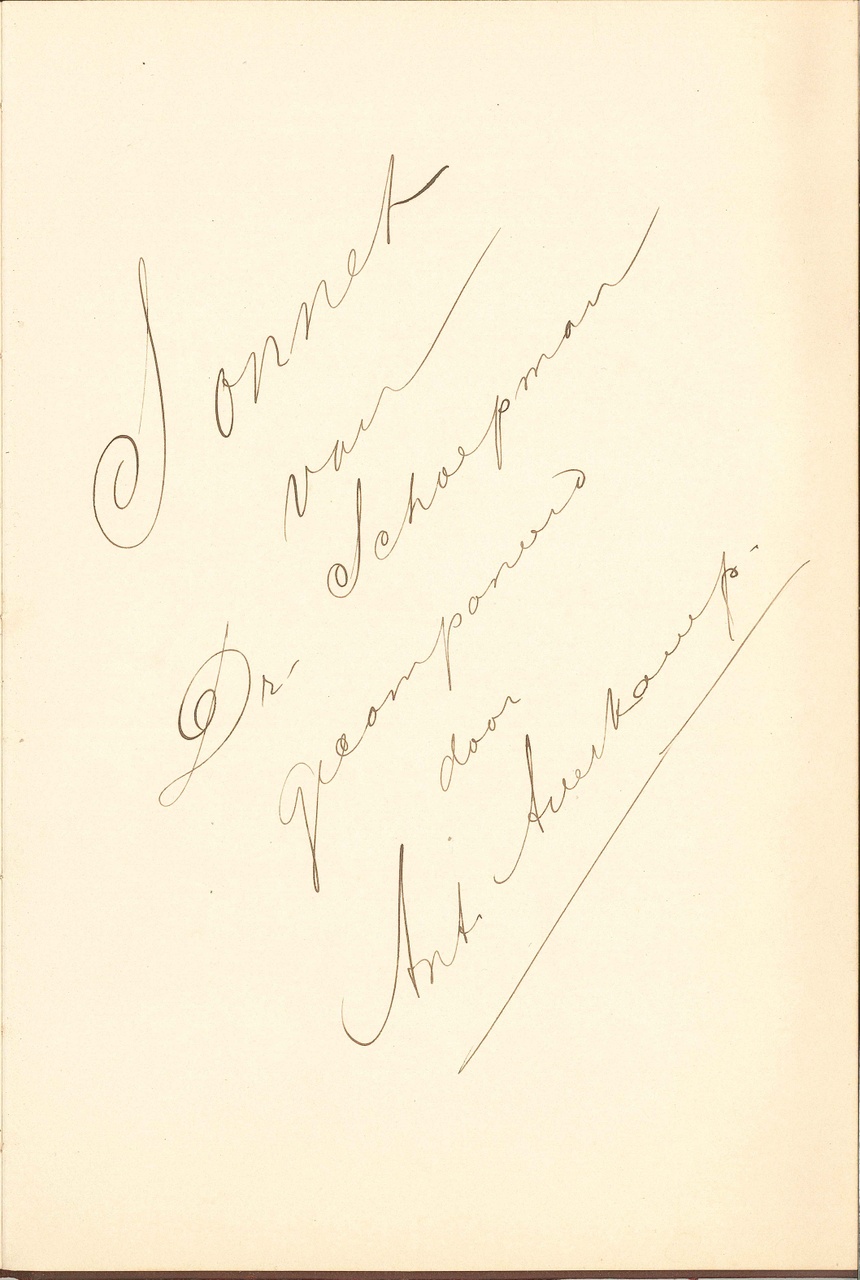 Sonnet
van
Dr. Schaepman
gecomponeerd
door
Ant. Averkamp.